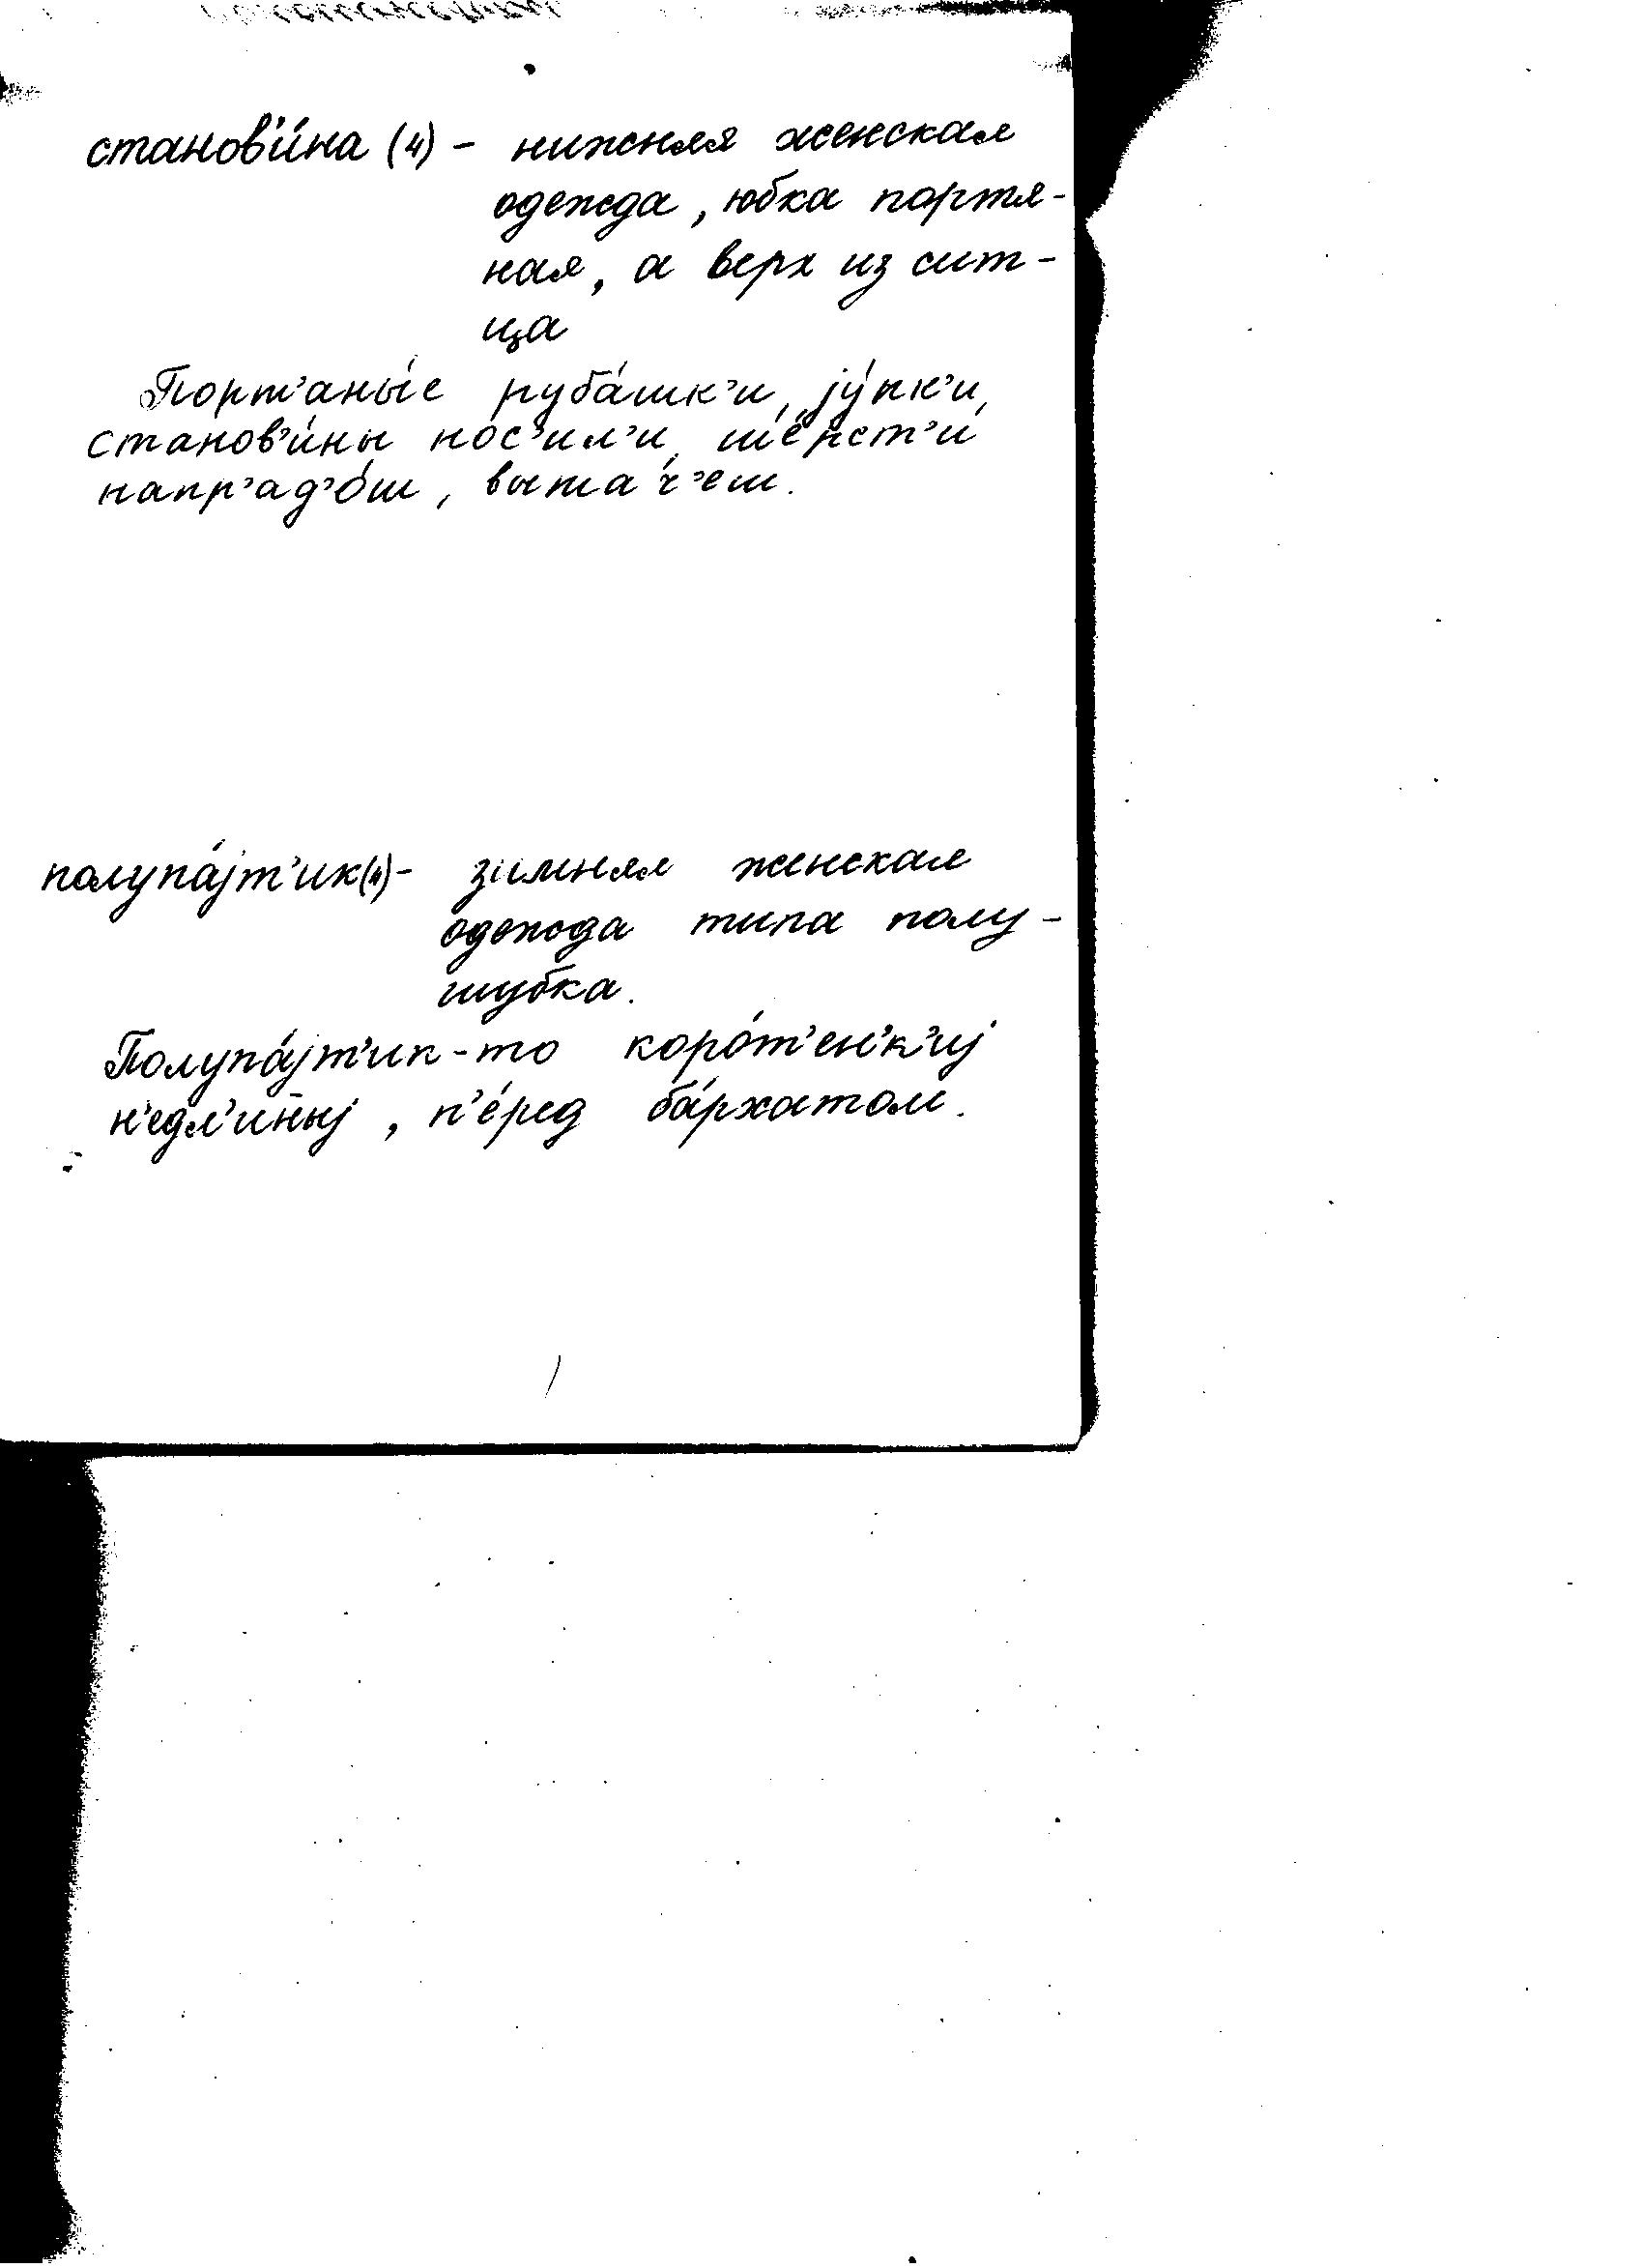 станов'и́на (4) - нижняя женская
одежда, юбка портя-
ная, а верх из сит-
ца
Порт'аны́е руба́шк'и, jу́пк'и,
станов'и́ны нос'ил'и, ше́рст'и
напр'ад'о́ш, вытач'еш.
полупа́jт'ик (4) - зимняя женская
одежда типа полу-
шубка.
Полупа́jт'ик-то коро́т'ен'к'иj
н'едл'ин̄ыj, п'е́ред ба́рхатом.